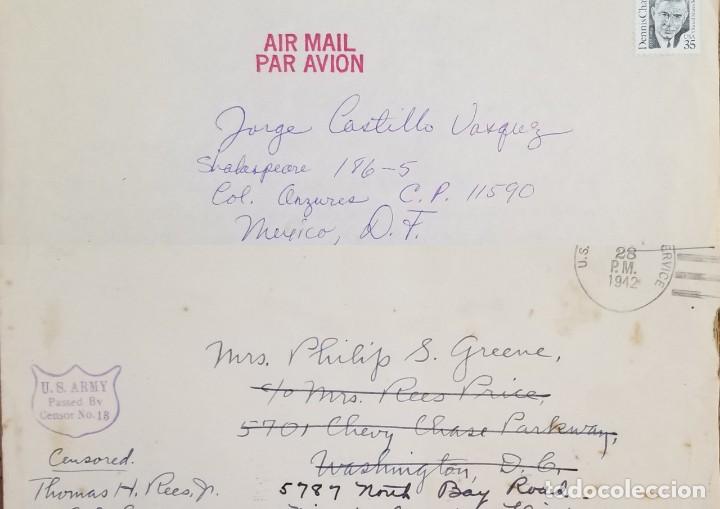 AIR MAIL
PAR AVION
Dennis Cha
USA
35
Jorge Castillo Vasquez
Shakaspeare 186-5
Col. Anzures C.P. 11590
Mexico, D.F.
U.S. ERVICE
28
P.M.
1942
Mrs. Philip S. Greene,
c/o Mrs. Rees Price,
5701 Chevy Chase Parkway,
Washington, D.C.
5787 North Bay Road
U.S. ARMY
Passed By
Censor No. 18
Censored.
Thomas H. Rees, Jr.
todocoleccion.net